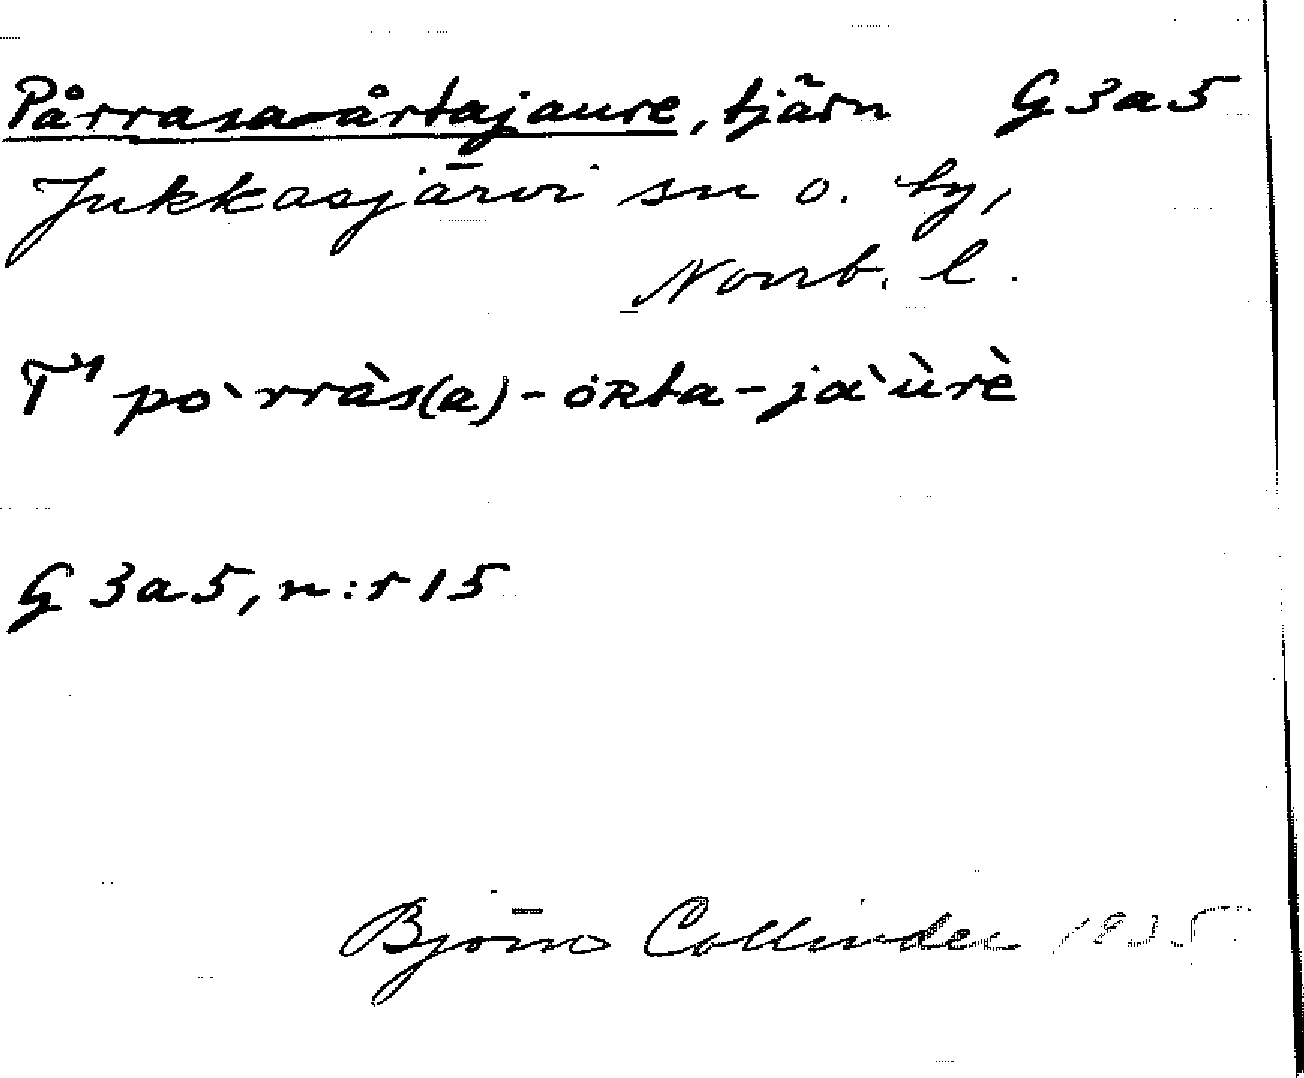 Pårrasa-årtajaure, tjärn G3a5
Jukkasjärvi sn o. ty,
Norrb. l.
po`rràs(a)-oʀta-ja`ùrè
G3a5, n:r 15
Björn Collinder